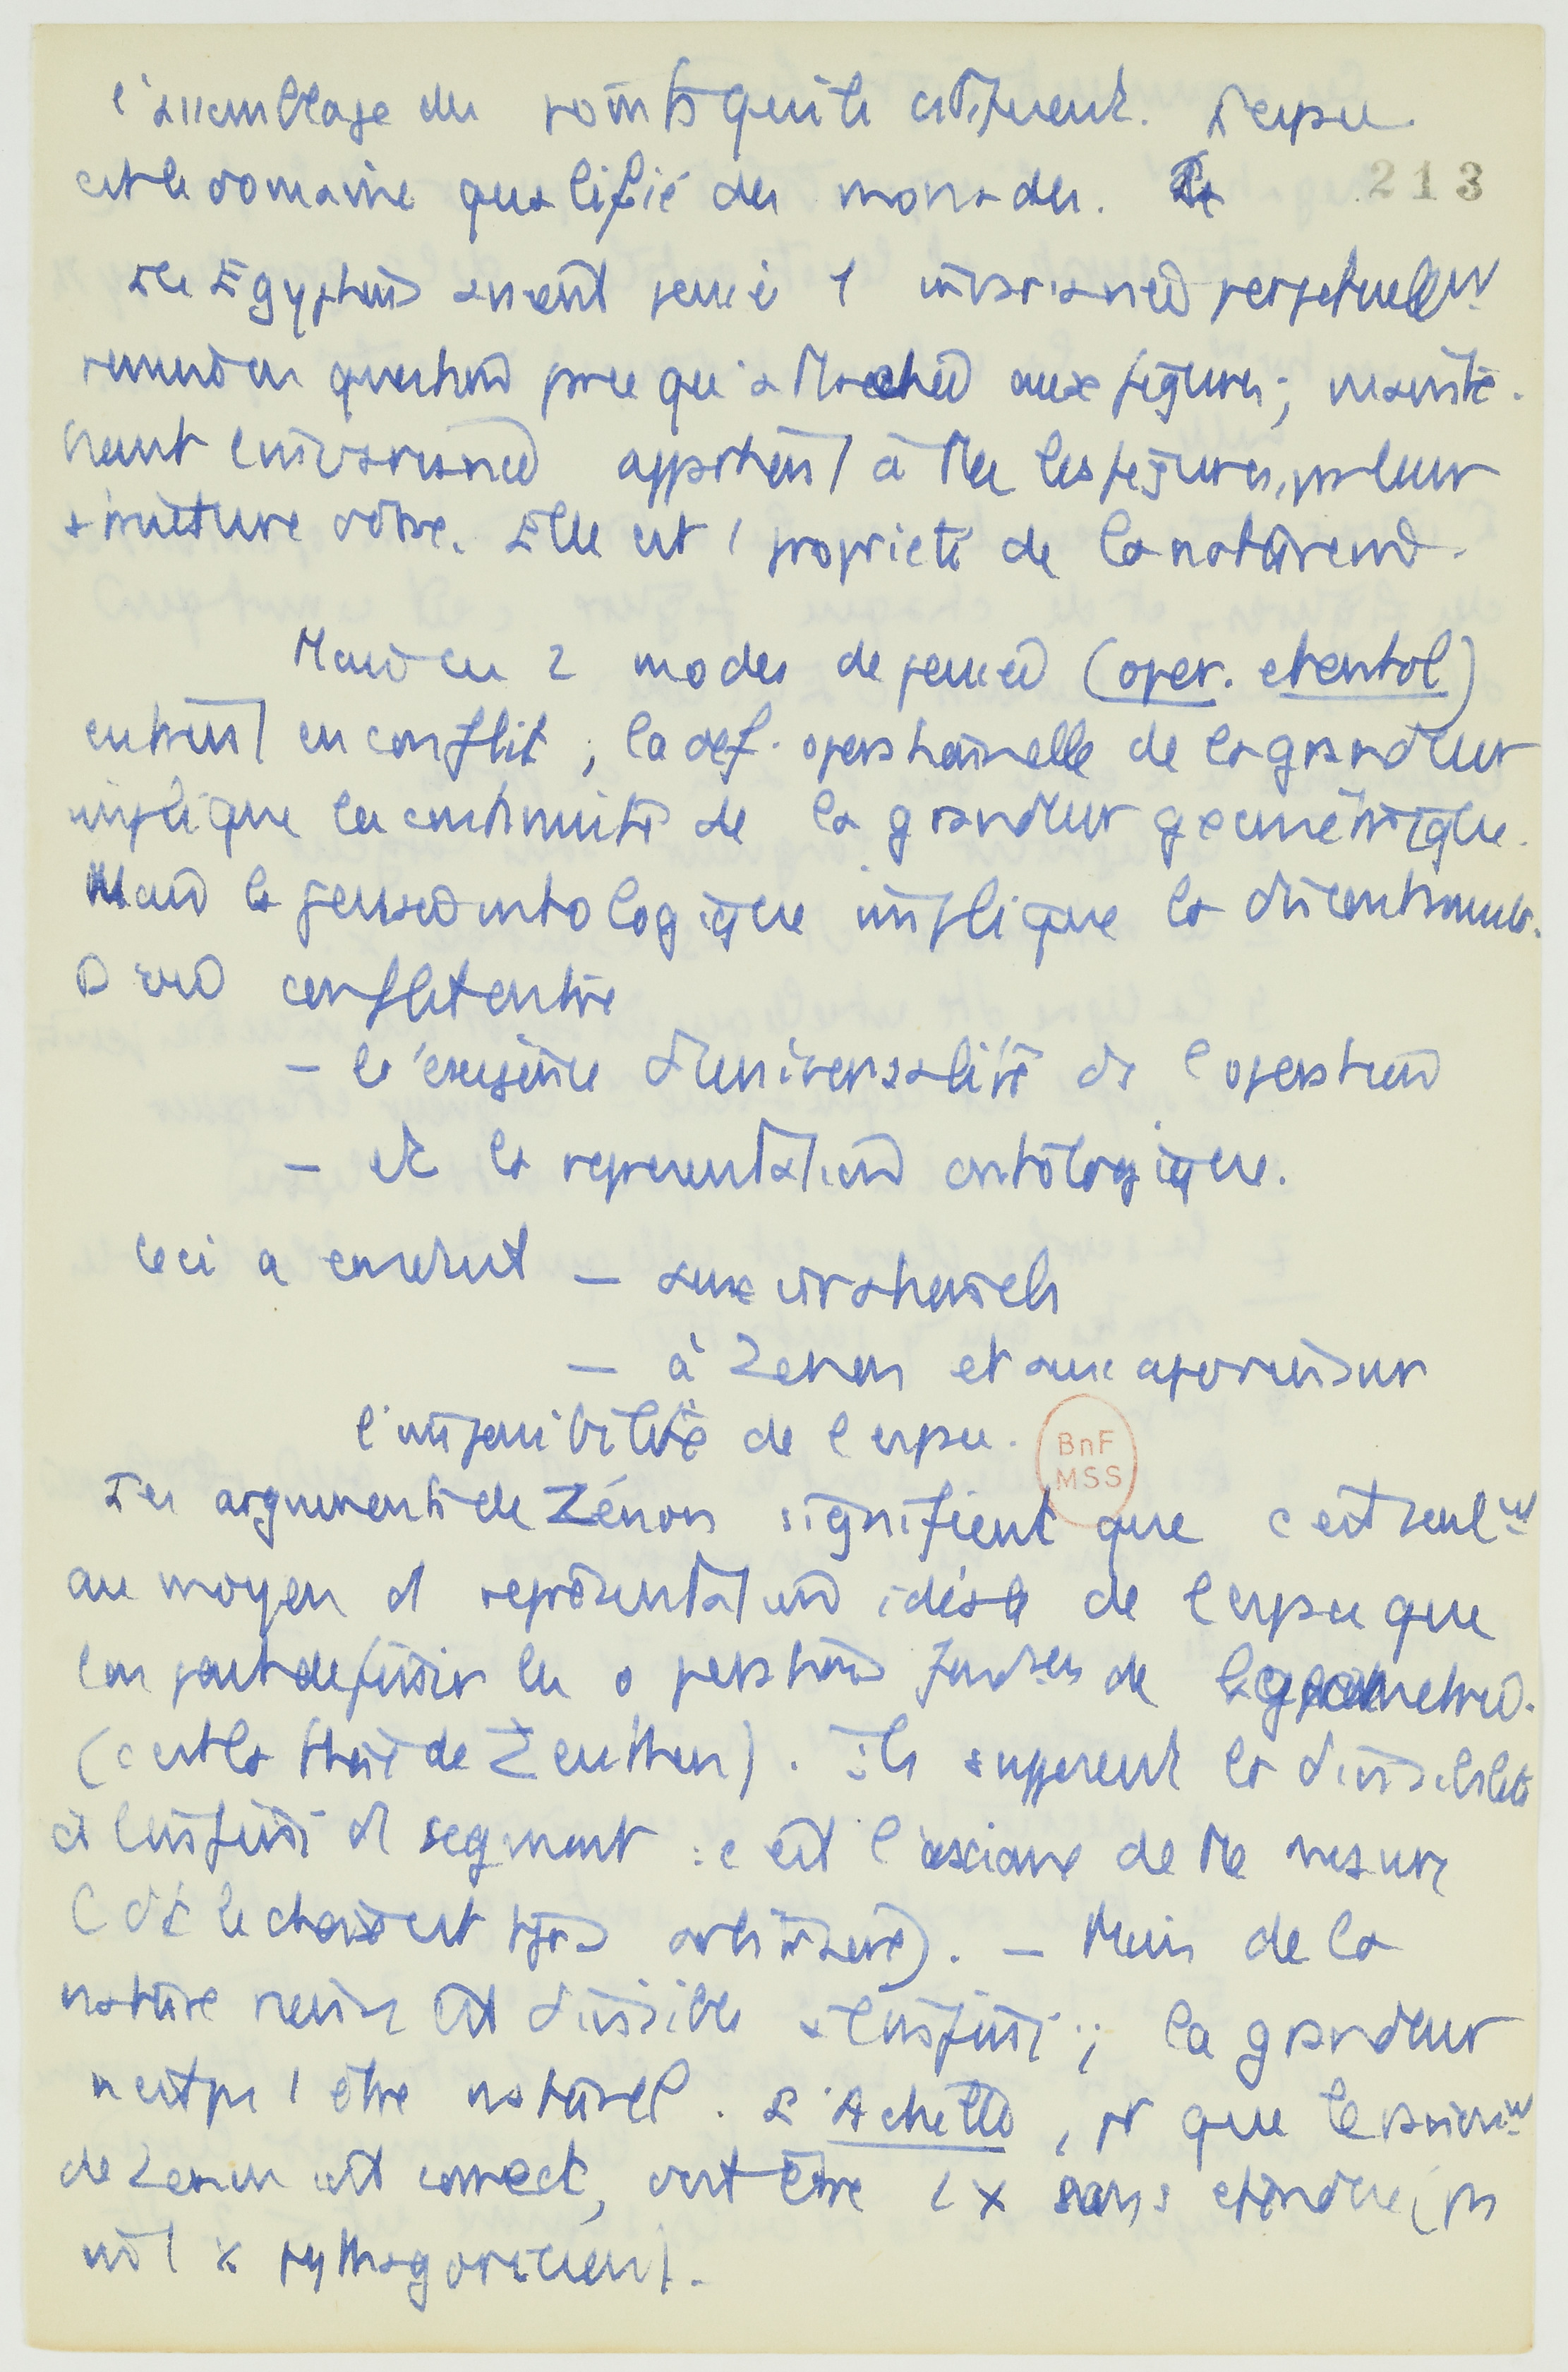 l'assemblage des points qui le constituent. L'espace
est le domaine qualifié des monades.
213
Les Egyptiens avaient pensé 1 invariance perpetuellemt
remise en question parce qu'attachée aux figures; mainte-
nant l'invariance appartient à ttes les figures, par leur
structure même. Elle est 1 propriété de la nature
Mais ces 2 modes de pensée (oper. et ontol)
entrent en conflit ; la def. operationnelle de la grandeur
implique la continuité de la grandeur géométrique.
Mais la pensée ontologique implique la discontinuité.
D'où conflit entre
— l'exigence d'universalité de l'operation
— et la representation ontologique.
Ceci a conduit — aux irrationnels
— à Zenon et aux apories sur
l'impensabilité de l'espace.
BnF
MSS
Les arguments de Zénon signifient que c'est seulmt
au moyen d' 1 représentation idéale de l'espace que
l'on peut définir les operations fondam. de la géometrie.
(c'est la thèse de Zeuthen). Ils supposent la divisibilité
à l'infini d' 1 segment : c'est l'axiome de tte mesure
(dt le choix est tjrs arbitraire). — Mais de la
nature rien n'est divisible à l'infini ; la grandeur
n'est pas 1 être naturel. L'Achille, pr que le raisonnemt
de Zenon soit correct, doit être 1 x sans étendue, pas
1 x pythagoricien.